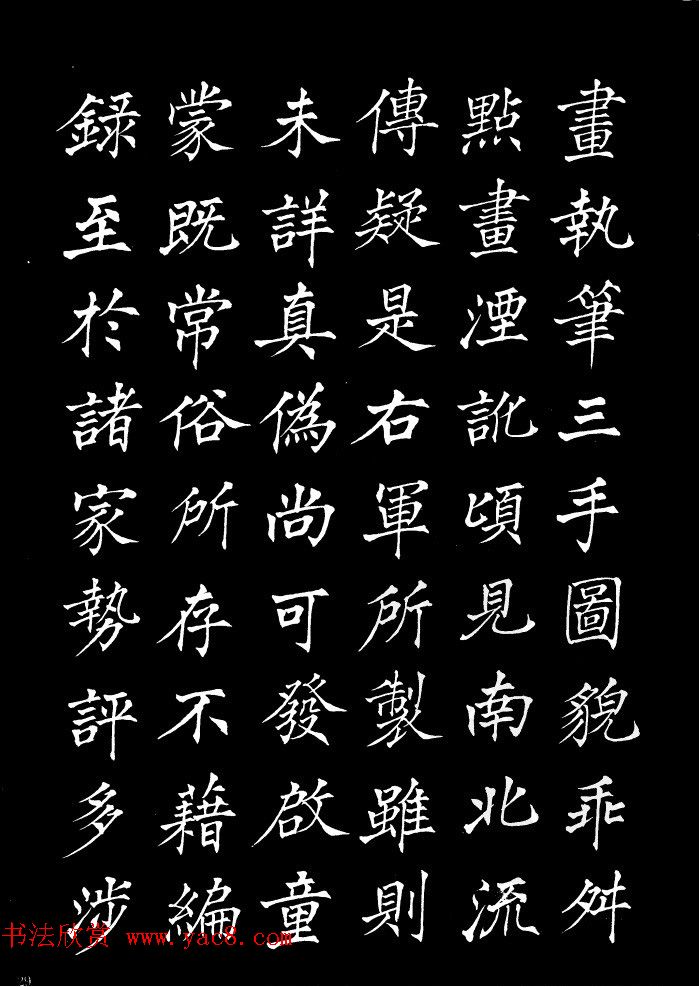 畫執筆三手圖貌乖舛
點畫湮訛頃見南北流
傳疑是右軍所製雖則
未詳真偽尚可發啟童
蒙既常俗所存不藉編
錄至於諸家勢評多涉
书法欣赏 www.yac8.com
29